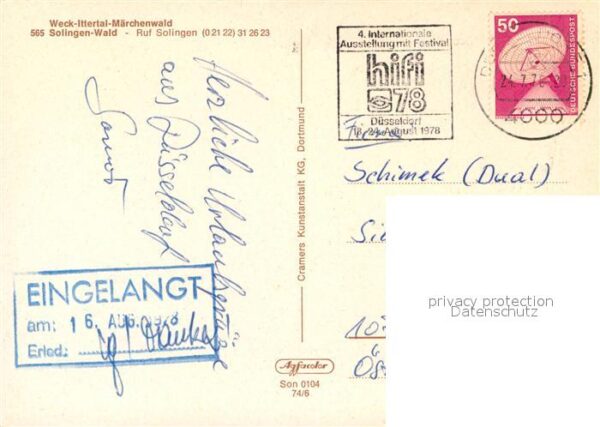 Weck-Ittertal-Märchenwald
565 Solingen-Wald - Ruf Solingen (0 21 22) 31 26 23
Herzliche Urlaubsgrüße
aus Düsseldorf
EINGELANGT
am: 16. AUG. 1978
Erled.:
Cramers Kunstanstalt KG, Dortmund
Agfacolor
Son 0104
74/6
4. Internationale
Ausstellung mit Festival
hifi
78
Düsseldorf
18.-24. August 1978
50
DEUTSCHE BUNDESPOST
4000
Firma
Schimek (Dual)
privacy protection
Datenschutz